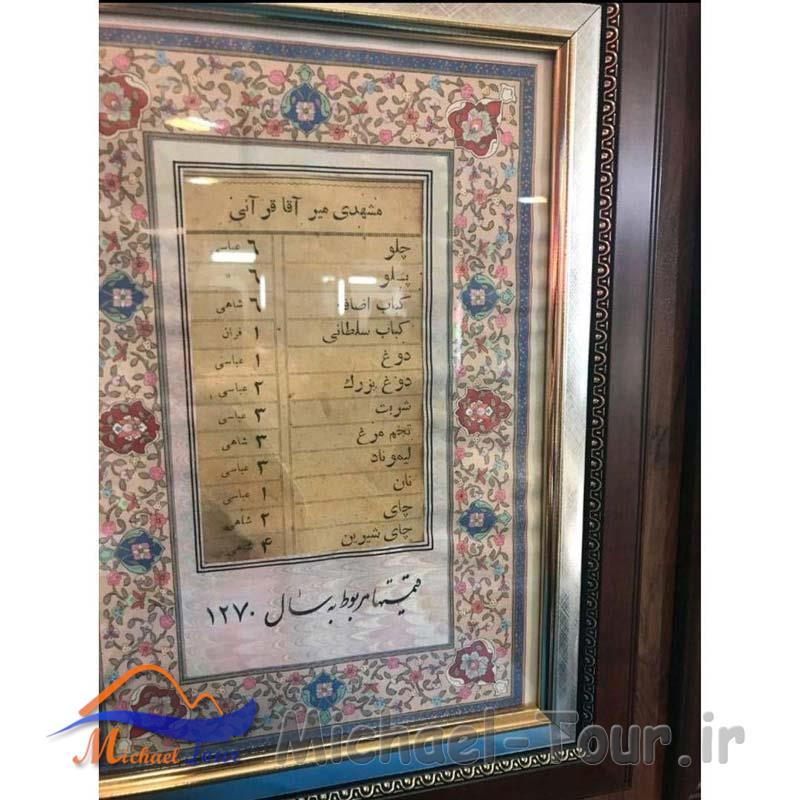 مشهدی میر آقا قرآنی
چلو ۶ عباسی
پلو ۶ "
کباب اضافه ۶ شاهی
کباب سلطانی ۱ قران
دوغ ۱ عباسی
دوغ بزرك ۲ عباسی
شربت ۳ عباسی
تخم مرغ ۳ شاهی
لیموناد ۳ عباسی
نان ۱ عباسی
چای ۲ شاهی
چای شیرین ۴ شاهی
قیمتها مربوط به سال ۱۲۷۰
Michael Tour
Michael-Tour.ir